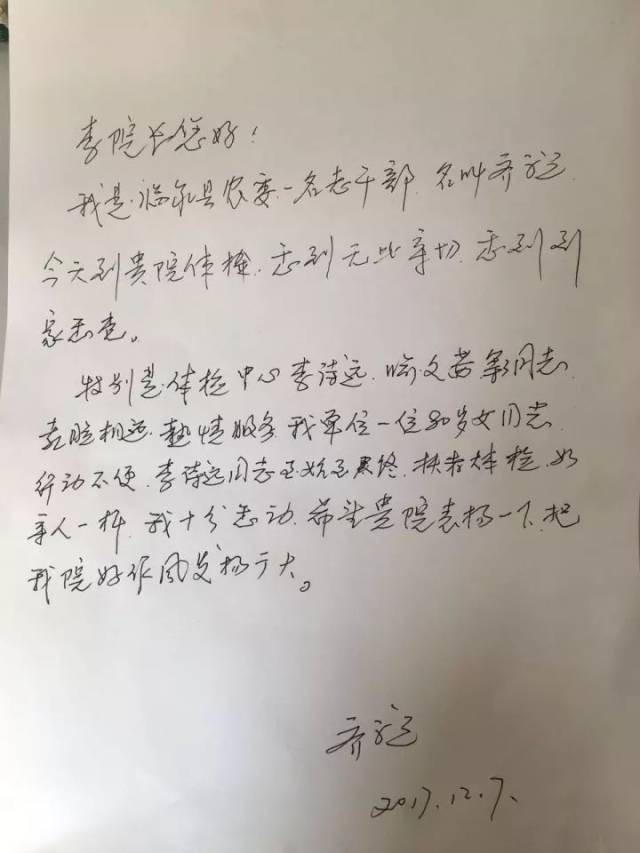 李院长您好!
我是临泉县农委一名老干部,名叫齐
今天到贵院体检,感到无比亲切,感到到
家感觉。
特别是体检中心李诗远、文茜等同志
热情服务,我单位一位80岁女同志
行动不便,李诗远同志至始至终,扶着体检,如
亲人一样,我十分感动,希望贵院表扬一下,把
我院好作风发扬广大。
齐
2017.12.7、